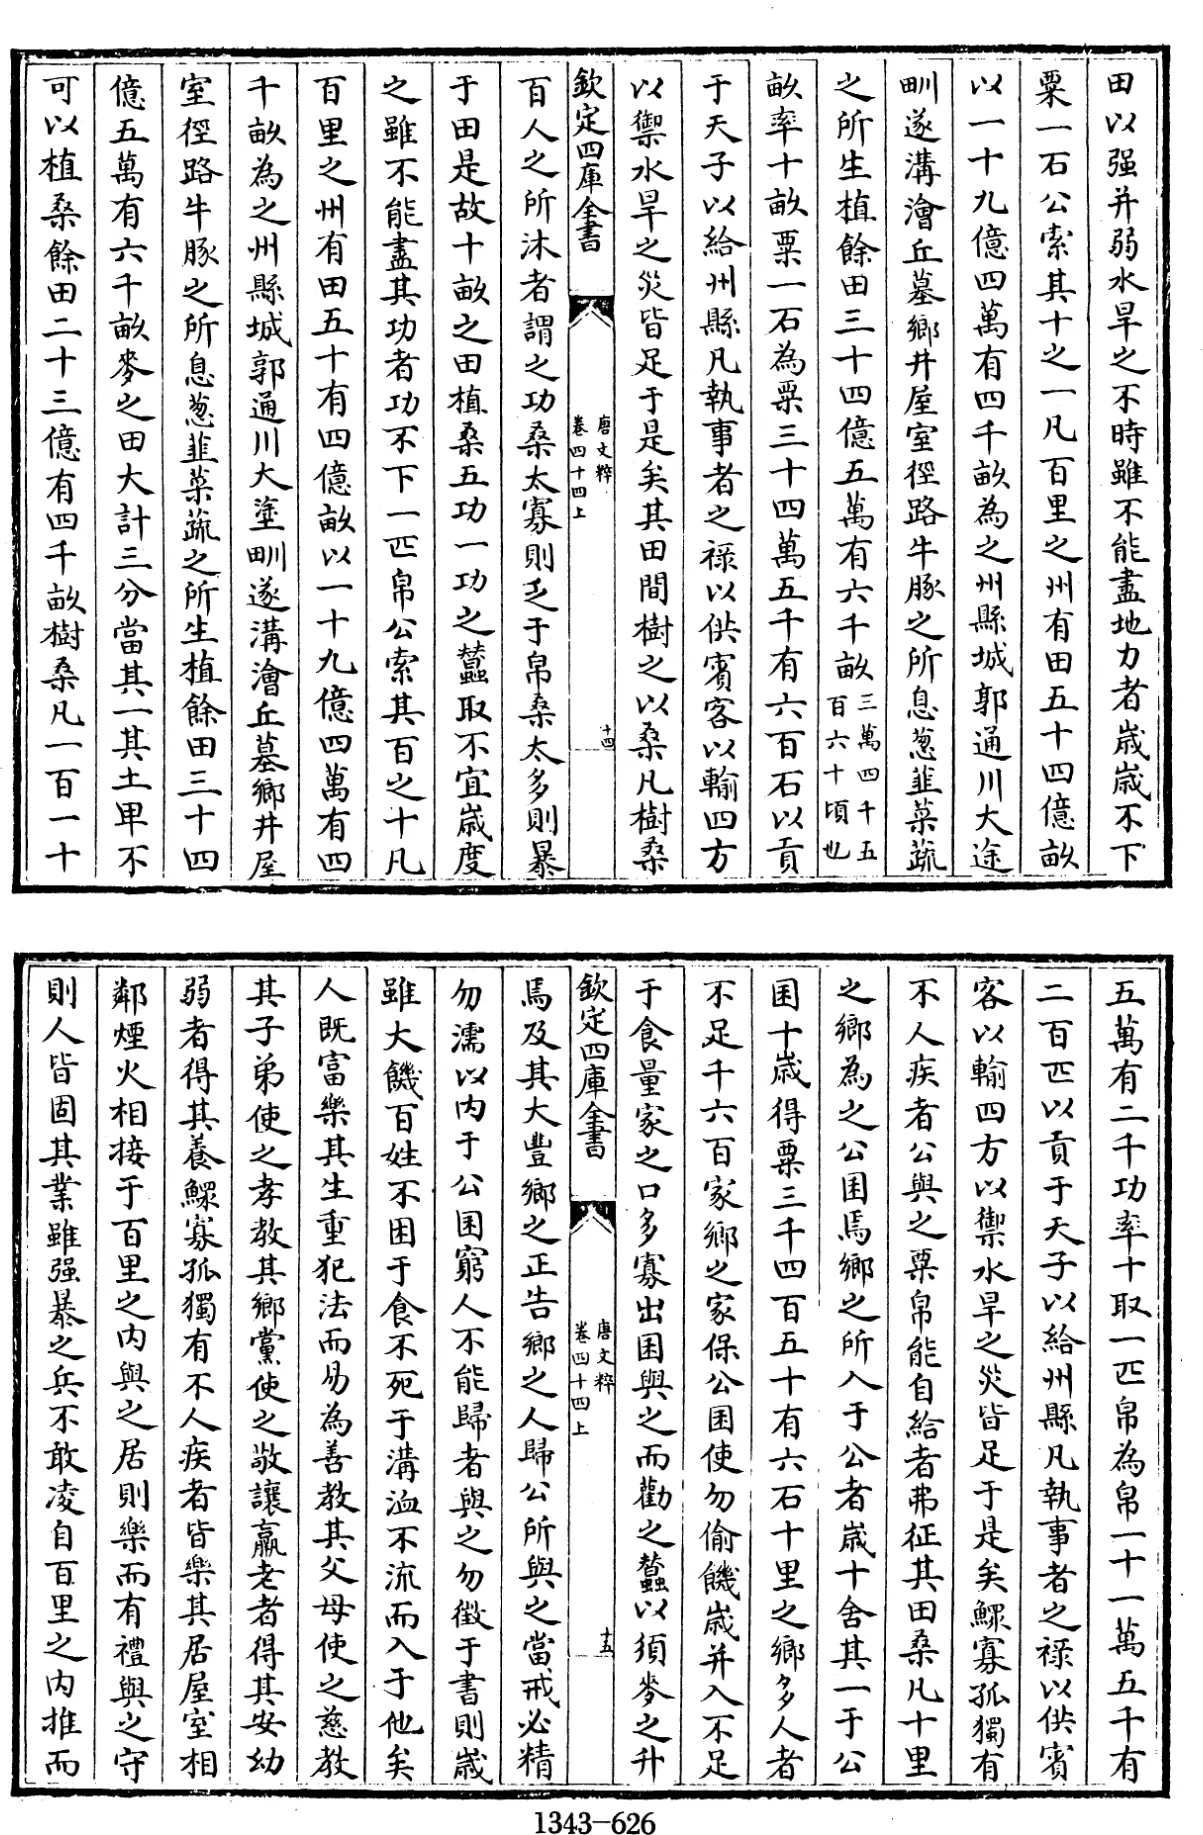 田以强并弱水旱之不時雖不能盡地力者歳歳不下
粟一石公索其十之一凡百里之州有田五十四億畝
以一十九億四萬有四千畝為之州縣城郭通川大途
甽遂溝澮丘墓鄉井屋室徑路牛豚之所息葱韮菜蔬
之所生植餘田三十四億五萬有六千畝三萬四千五百六十頃也
畝率十畝粟一石為粟三十四萬五千有六百石以貢
于天子以給州縣凡執事者之祿以供賓客以輸四方
以禦水旱之災皆足于是矣其田間樹之以桑凡樹桑
欽定四庫全書
唐文粹
卷四十四上
十四
百人之所沐者謂之功桑太寡則乏于帛桑太多則暴
于田是故十畝之田植桑五功一功之蠶取不宜歲度
之雖不能盡其功者功不下一匹帛公索其百之十凡
百里之州有田五十有四億畝以一十九億四萬有四
千畝為之州縣城郭通川大塗甽遂溝澮丘墓鄉井屋
室徑路牛豚之所息葱韮菜蔬之所生植餘田三十四
億五萬有六千畝麥之田大計三分當其一其土卑不
可以植桑餘田二十三億有四千畝樹桑凡一百一十
五萬有二千功率十取一匹帛為帛一十一萬五千有
二百匹以貢于天子以給州縣凡執事者之祿以供賓
客以輸四方以禦水旱之災皆足于是矣鰥寡孤獨有
不人疾者公與之粟帛能自給者弗征其田桑凡十里
之鄉為之公囷焉鄉之所入于公者歳十舍其一于公
囷十歳得粟三千四百五十有六石十里之鄉多人者
不足千六百家鄉之家保公囷使勿偷饑歳并入不足
于食量家之口多寡出囷與之而勸之蠶以須麥之升
欽定四庫全書
唐文粹
卷四十四上
十五
焉及其大豐鄉之正告鄉之人歸公所與之當戒必精
勿濡以内于公囷窮人不能歸者與之勿徵于書則歳
雖大饑百姓不困于食不死于溝洫不流而入于他矣
人既富樂其生重犯法而易為善教其父母使之慈教
其子弟使之孝教其鄉黨使之敬讓羸老者得其安幼
弱者得其養鰥寡孤獨有不人疾者皆樂其居屋室相
鄰煙火相接于百里之内與之居則樂而有禮與之守
則人皆固其業雖强暴之兵不敢凌自百里之内推而
1343-626